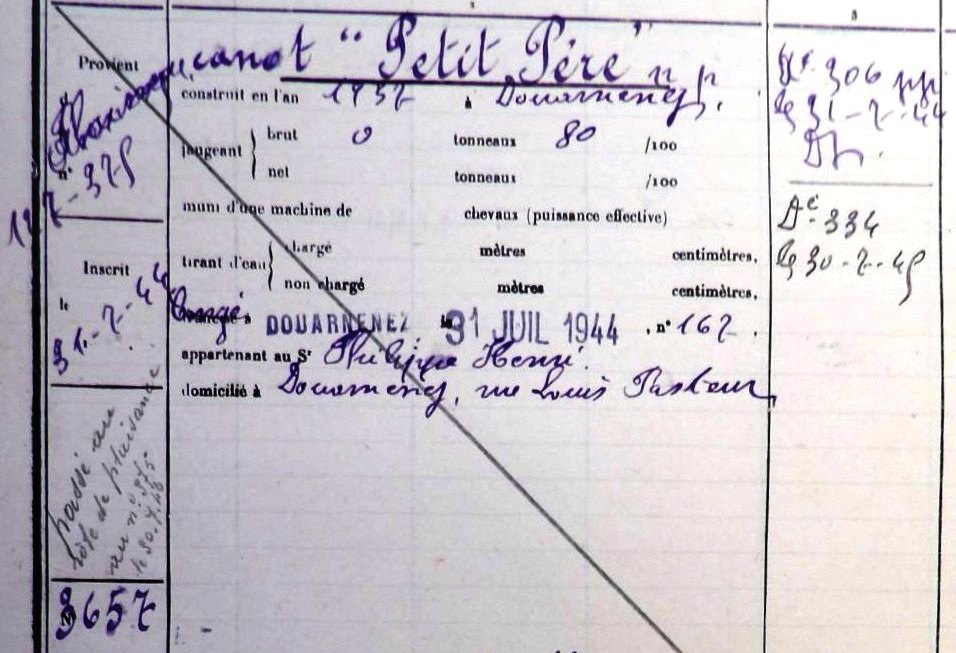 Provient
n°
- 375
Inscrit
le
31-7-44
passé au
rôle de plaisance
au n° 975
le 30.7.45
3657
canot “Petit Père” n p.
construit en l'an 1937 à Douarnenez.
jaugeant
brut 0 tonneaux 80 /100
net tonneaux /100
muni d'une machine de chevaux (puissance effective)
tirant d'eau
chargé mètres centimètres,
non chargé mètres centimètres,
Congé. à DOUARNENEZ le 31 JUIL 1944, n° 167.
appartenant au Sr Philippe Henri.
domicilié à Douarnenez, rue Louis Pasteur
3
306 pp
le 31-7-44
Dé 334
le 30-7-45